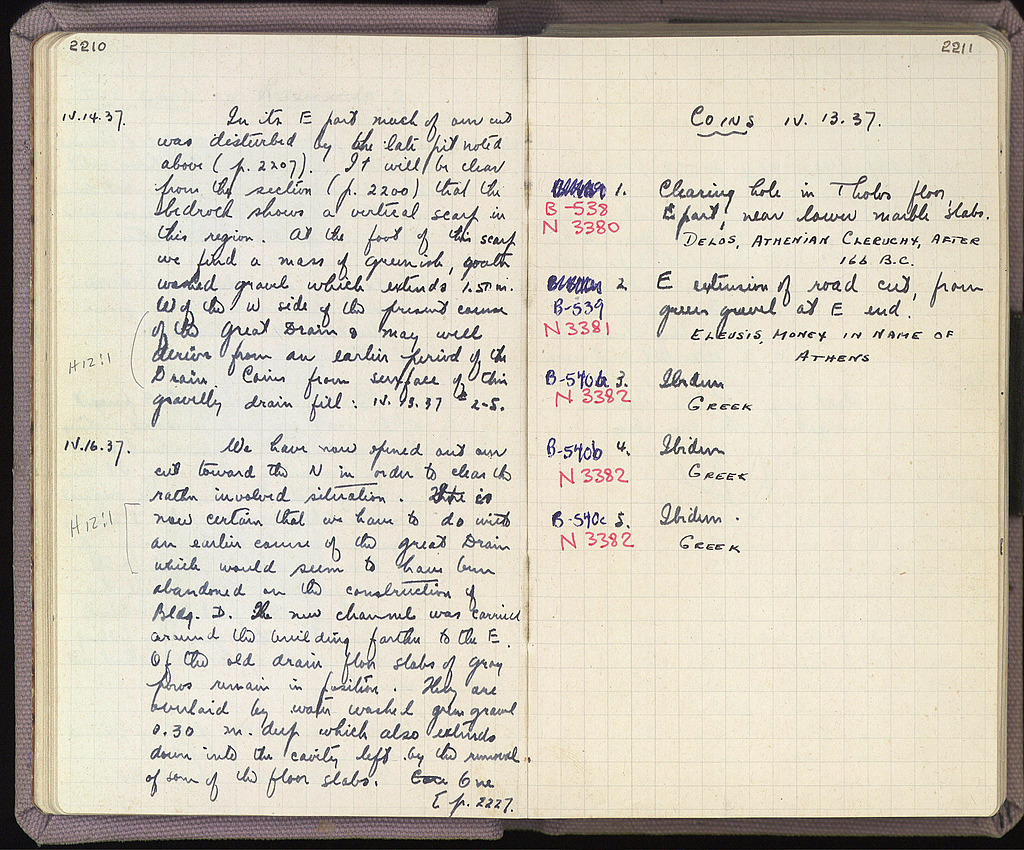 2210
IV.14.37. In its E part much of our cut
was disturbed by the late pit noted
above (p. 2207). It will be clear
from the section (p. 2200) that the
bedrock shows a vertical scarp in
this region. At the foot of this scarp
we find a mass of greenish,
washed gravel which extends 1.50 m.
W of the W side of the present course
of the Great Drain & may well
H 12:1 derive from an earlier period of the
Drain. Coins from surface of this
gravelly drain fill: IV. 13.37 # 2-5.
IV.16.37. We have now opened out our
cut toward the N in order to clear the
rather involved situation. It is
H 12:1 now certain that we have to do with
an earlier course of the Great Drain
which would seem to have been
abandoned on the construction of
Bldg. D. The new channel was carried
around the building farther to the E.
Of the old drain floor slabs of gray
poros remain in position. They are
overlaid by water washed green gravel
0.30 m. deep which also extends
down into the cavity left by the removal
of some of the floor slabs. One
p. 2227.
2211
COINS IV. 13.37.
1. Clearing hole in Tholos floor,
B-538 E part, near lower marble slabs.
N 3380
DELOS, ATHENIAN CLERUCHY, AFTER
166 B.C.
2. E extension of road cut, from
B-539 green gravel at E end.
N 3381
ELEUSIS, MONEY IN NAME OF
ATHENS
B-540a 3. Ibidem
N 3382 GREEK
B-540b 4. Ibidem
N 3382 GREEK
B-540c 5. Ibidem.
N 3382 GREEK